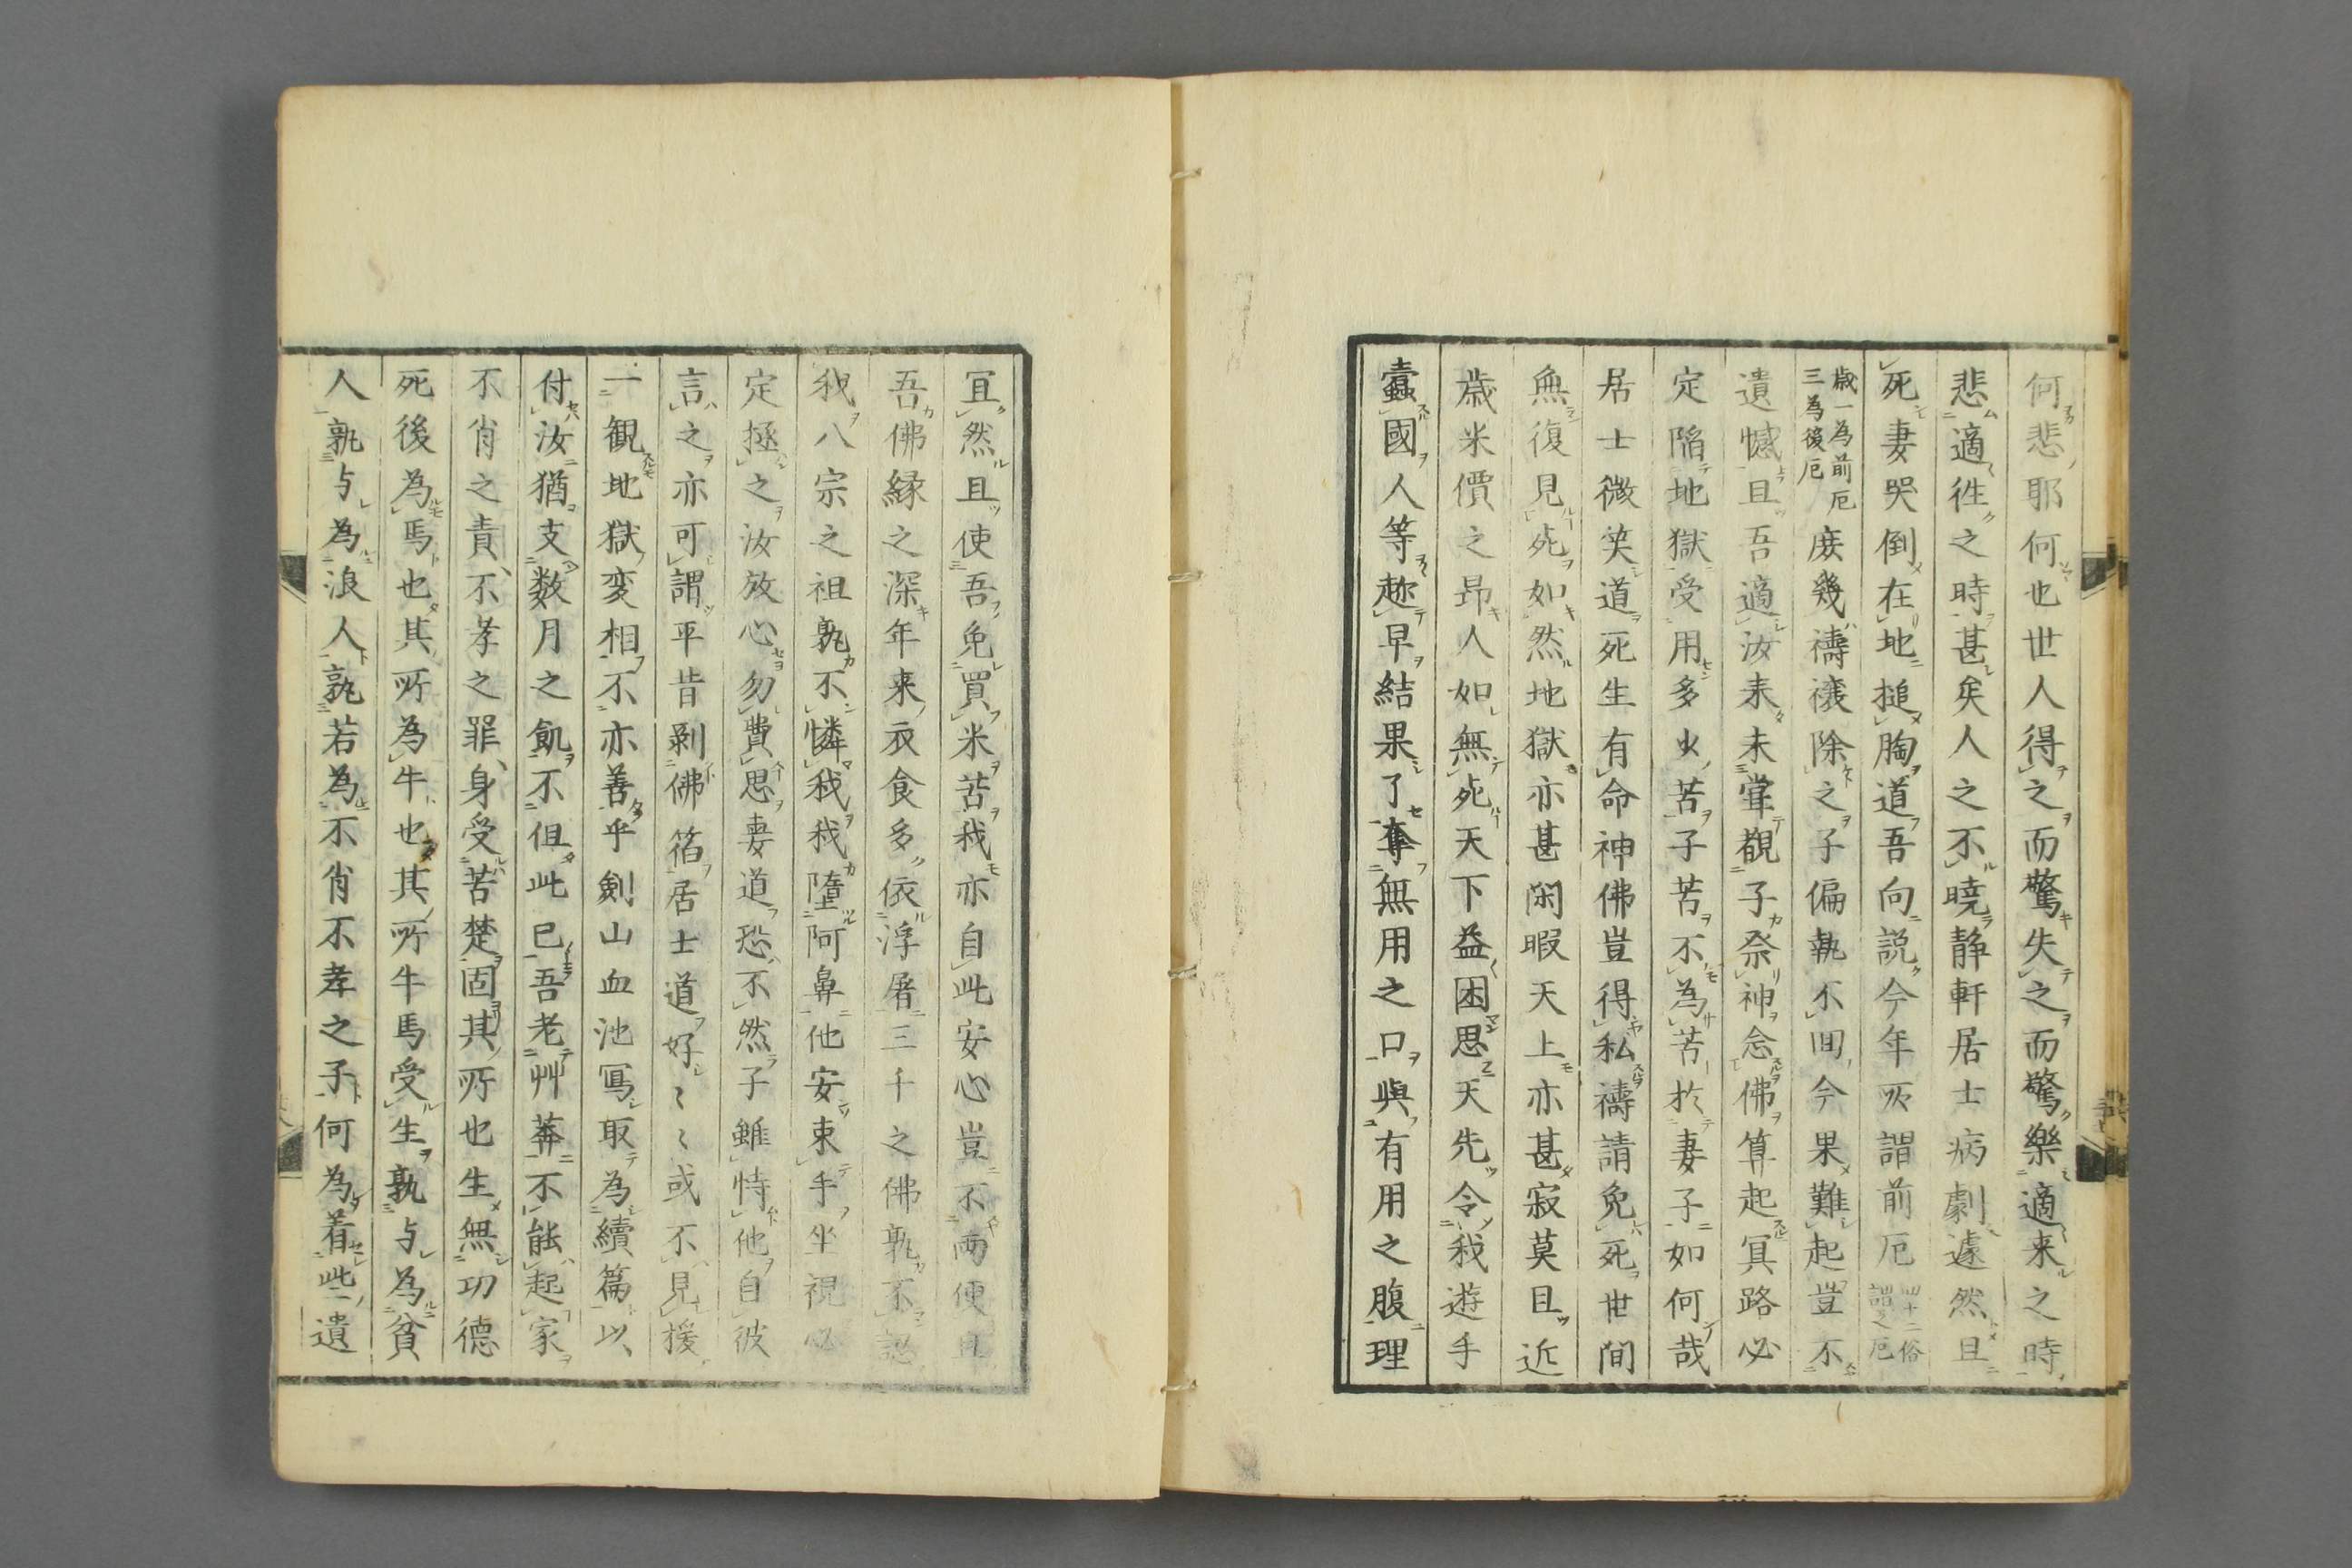 何悲耶何也世人得之而驚失之而驚樂適来之時
悲適徃之時甚矣人之不曉静軒居士病劇遽然且
死妻哭倒在地搥胸道吾向説今年所謂前厄四十二俗謂之厄
歳一為前厄三為後厄庻幾禱禳除之子偏執不回今果難起豈不
遺憾且吾適汝来未甞覩子祭神念佛算起冥路必
定陷地獄受用多少苦子苦不為苦於妻子如何哉
居士微笑道死生有命神佛豈得私禱請免死世間
無復見死如然地獄亦甚閑暇天上亦甚寂莫且近
歳米價之昂人如無死天下益困思天先令我遊手
蠹國人等趂早結果了奪無用之口與有用之腹理
冝然且使吾免買米苦我亦自此安心豈不両便且
吾佛縁之深年来衣食多依浮屠三千之佛孰不認
我八宗之祖孰不憐我我墮阿鼻他安束手坐視必
定拯之汝放心勿費思妻道恐不然子雖恃他自彼
言之亦可謂平昔剥佛箔居士道好〻〻或不見援
一観地獄変相不亦善乎劍山血池冩取為續篇以
付汝猶支数月之飢不但此已吾老艸莾不能起家
不肖之責不孝之罪身受苦楚固其所也生無功徳
死後為馬也其所為牛也其所牛馬受生孰与為貧
人孰与為浪人孰若為不肖不孝之子何為着些遺